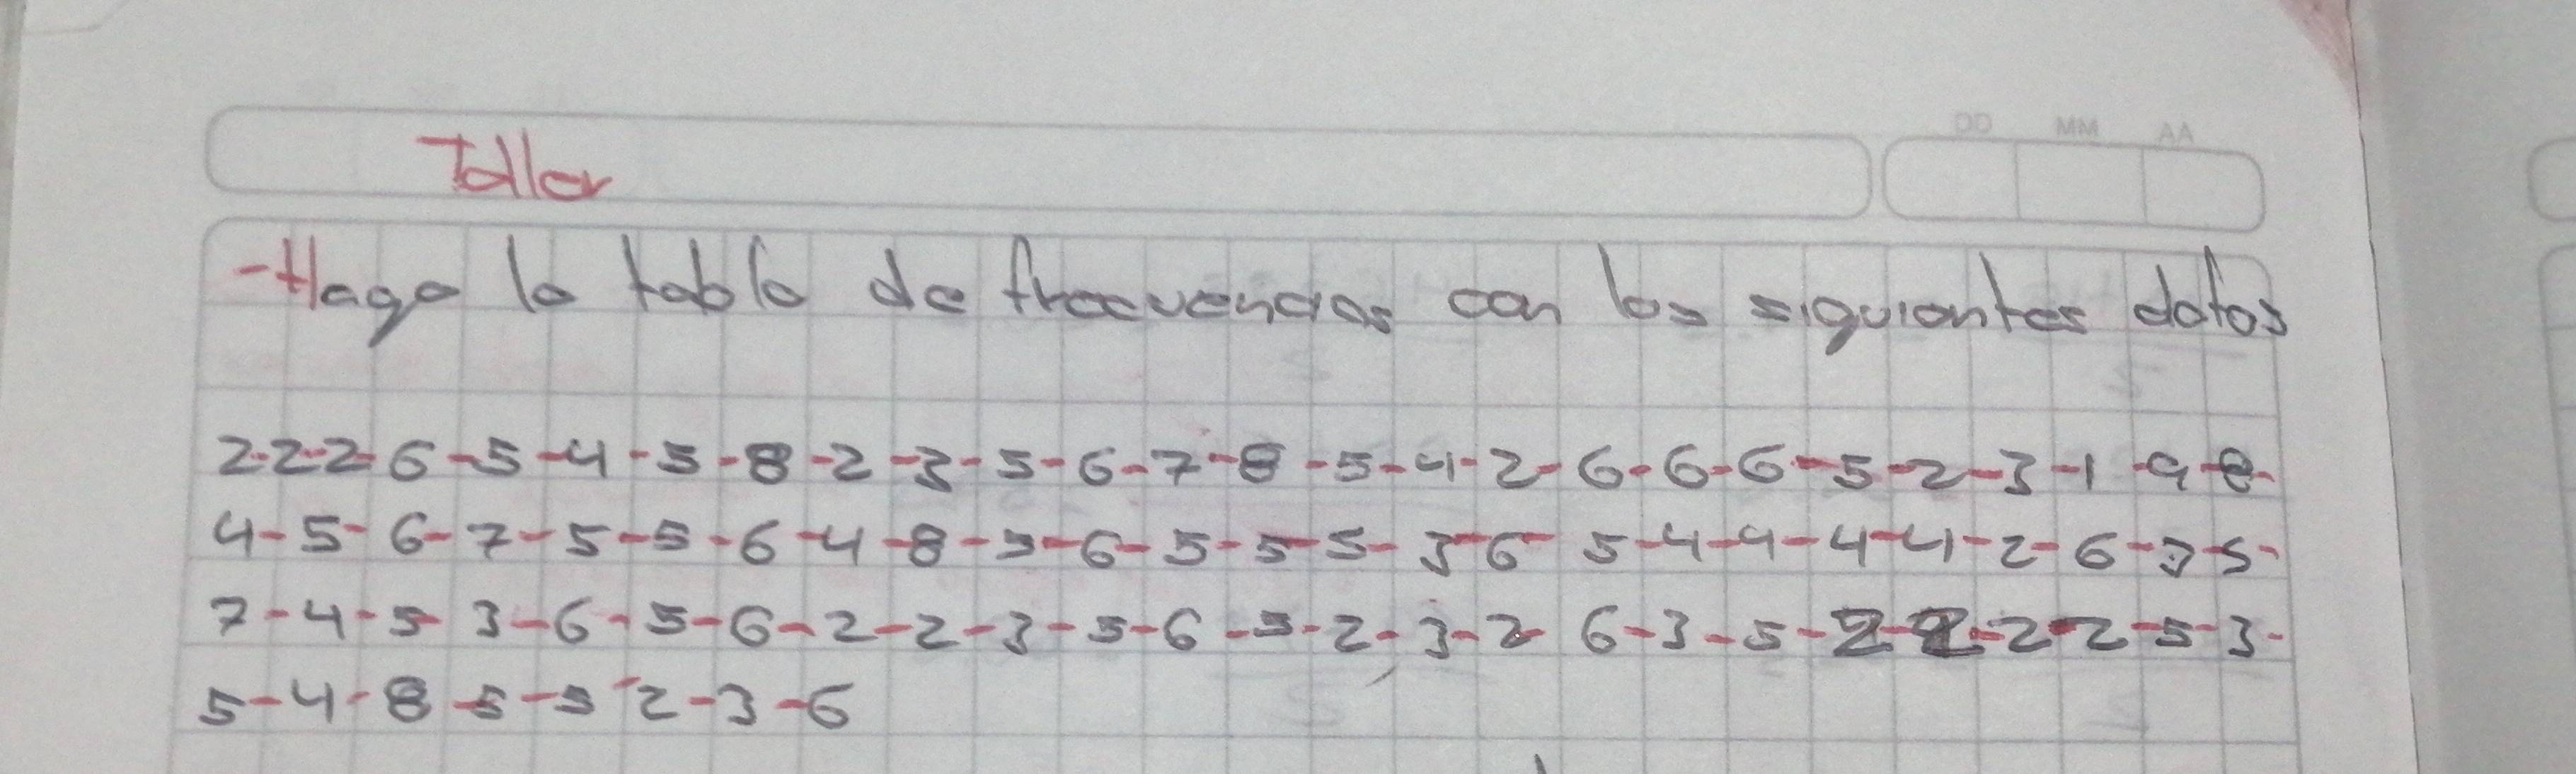 DD MM AA
Taller
-Haga la tabla de frecuencias con los siguientes datos
2-2-2-6-5-4-5-8-2-3-5-6-7-8-5-4-2-6-6-6-5-2-3-1-9-8-
4-5-6-7-5-5-6-4-8-5-6-5-5-5-3-6-5-4-4-4-4-2-6-3-5-
7-4-5-3-6-5-6-2-2-3-5-6-5-2-3-2-6-3-5-2-2-2-2-5-3-
5-4-8-5-5-2-3-6